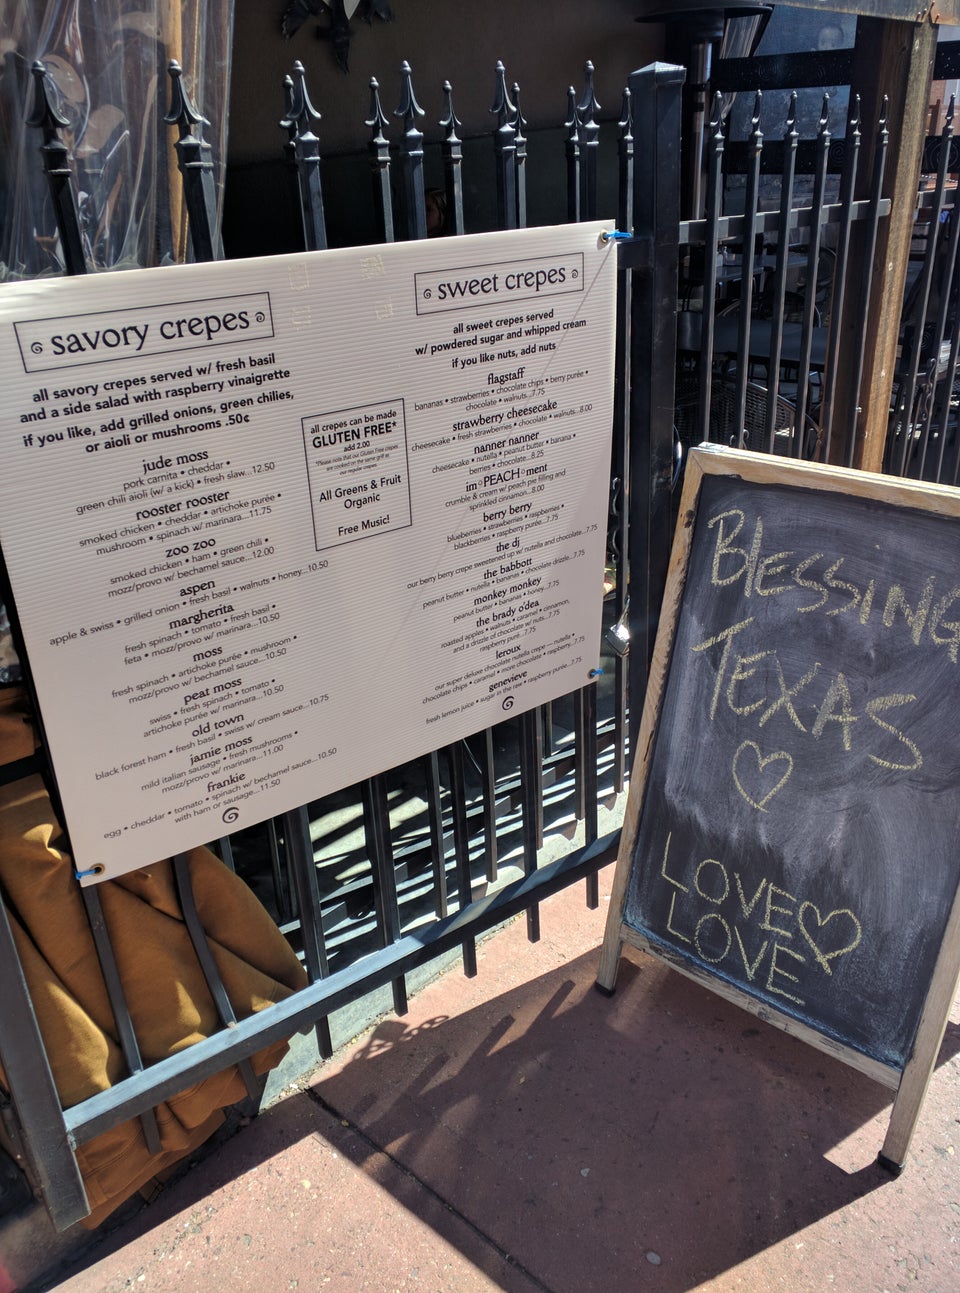 savory crepes
all savory crepes served w/ fresh basil
and a side salad with raspberry vinaigrette
if you like, add grilled onions, green chilies,
or aioli or mushrooms .50¢
jude moss
pork carnita • cheddar •
green chili aioli (w/ a kick) • fresh slaw...12.50
rooster rooster
smoked chicken • cheddar • artichoke purée •
mushroom • spinach w/ marinara...11.75
zoo zoo
smoked chicken • ham • green chili •
mozz/provo w/ bechamel sauce...12.00
aspen
apple & swiss • grilled onion • fresh basil • walnuts • honey...10.50
margherita
fresh spinach • tomato • fresh basil •
feta • mozz/provo w/ marinara...10.50
moss
fresh spinach • artichoke purée • mushroom •
mozz/provo w/ bechamel sauce...10.50
peat moss
swiss • fresh spinach • tomato •
artichoke purée w/ marinara...10.50
old town
black forest ham • fresh basil • swiss w/ cream sauce...10.75
jamie moss
mild italian sausage • fresh mushrooms •
mozz/provo w/ marinara...11.00
frankie
egg • cheddar • tomato • spinach w/ bechamel sauce...10.50
with ham or sausage...11.50
all crepes can be made
GLUTEN FREE*
add 2.00
*Please note that our Gluten Free crepes
are cooked on the same grill as
our regular crepes
All Greens & Fruit
Organic
Free Music!
sweet crepes
all sweet crepes served
w/ powdered sugar and whipped cream
if you like nuts, add nuts
flagstaff
bananas • strawberries • chocolate chips • berry purée •
chocolate • walnuts...7.75
strawberry cheesecake
cheesecake • fresh strawberries • chocolate • walnuts...8.00
nanner nanner
cheesecake • nutella • peanut butter • banana •
berries • chocolate...8.25
im°PEACH°ment
crumble & cream w/ peach pie filling and
sprinkled cinnamon...8.00
berry berry
blueberries • strawberries • raspberries •
blackberries • raspberry purée...7.75
the dj
our berry berry crepe sweetened up w/ nutella and chocolate...7.75
the babbott
peanut butter • nutella • bananas • chocolate drizzle...7.75
monkey monkey
peanut butter • bananas • honey...7.75
the brady o'dea
roasted apples • walnuts • caramel • cinnamon,
and a drizzle of chocolate w/ nuts...7.75
raspberry purée...7.75
leroux
our super deluxe chocolate nutella crepe — nutella •
chocolate chips • caramel • more chocolate • raspberry...7.75
genevieve
fresh lemon juice • sugar in the raw • raspberry purée...7.75
BLESSING
TEXAS
LOVE
LOVE